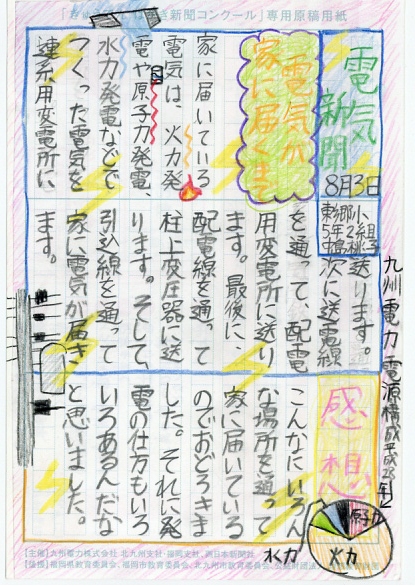 き新聞コンクール」専用原稿用紙
電気新聞
8月3日
5年2組
電気が
家に届くまで
家に届いている
電気は、火力発
電や原子力発電、
水力発電などで
つくった電気を
連系用変電所に
送ります。
次に送電線
を通って、配電
用変電所に送り
ます。最後に、
配電線を通って
柱上変圧器に送
ります。そして、
引込線を通って
家に電気が届き
ます。
感想
こんなにいろん
な場所を通って
家に届いている
のでおどろきま
した。それに発
電の仕方もいろ
いろあるんだな
と思いました。
九州電力電源構成平成28年
原子力
火力
水力
【主催】九州電力株式会社 北九州支社・福岡支社、西日本新聞社